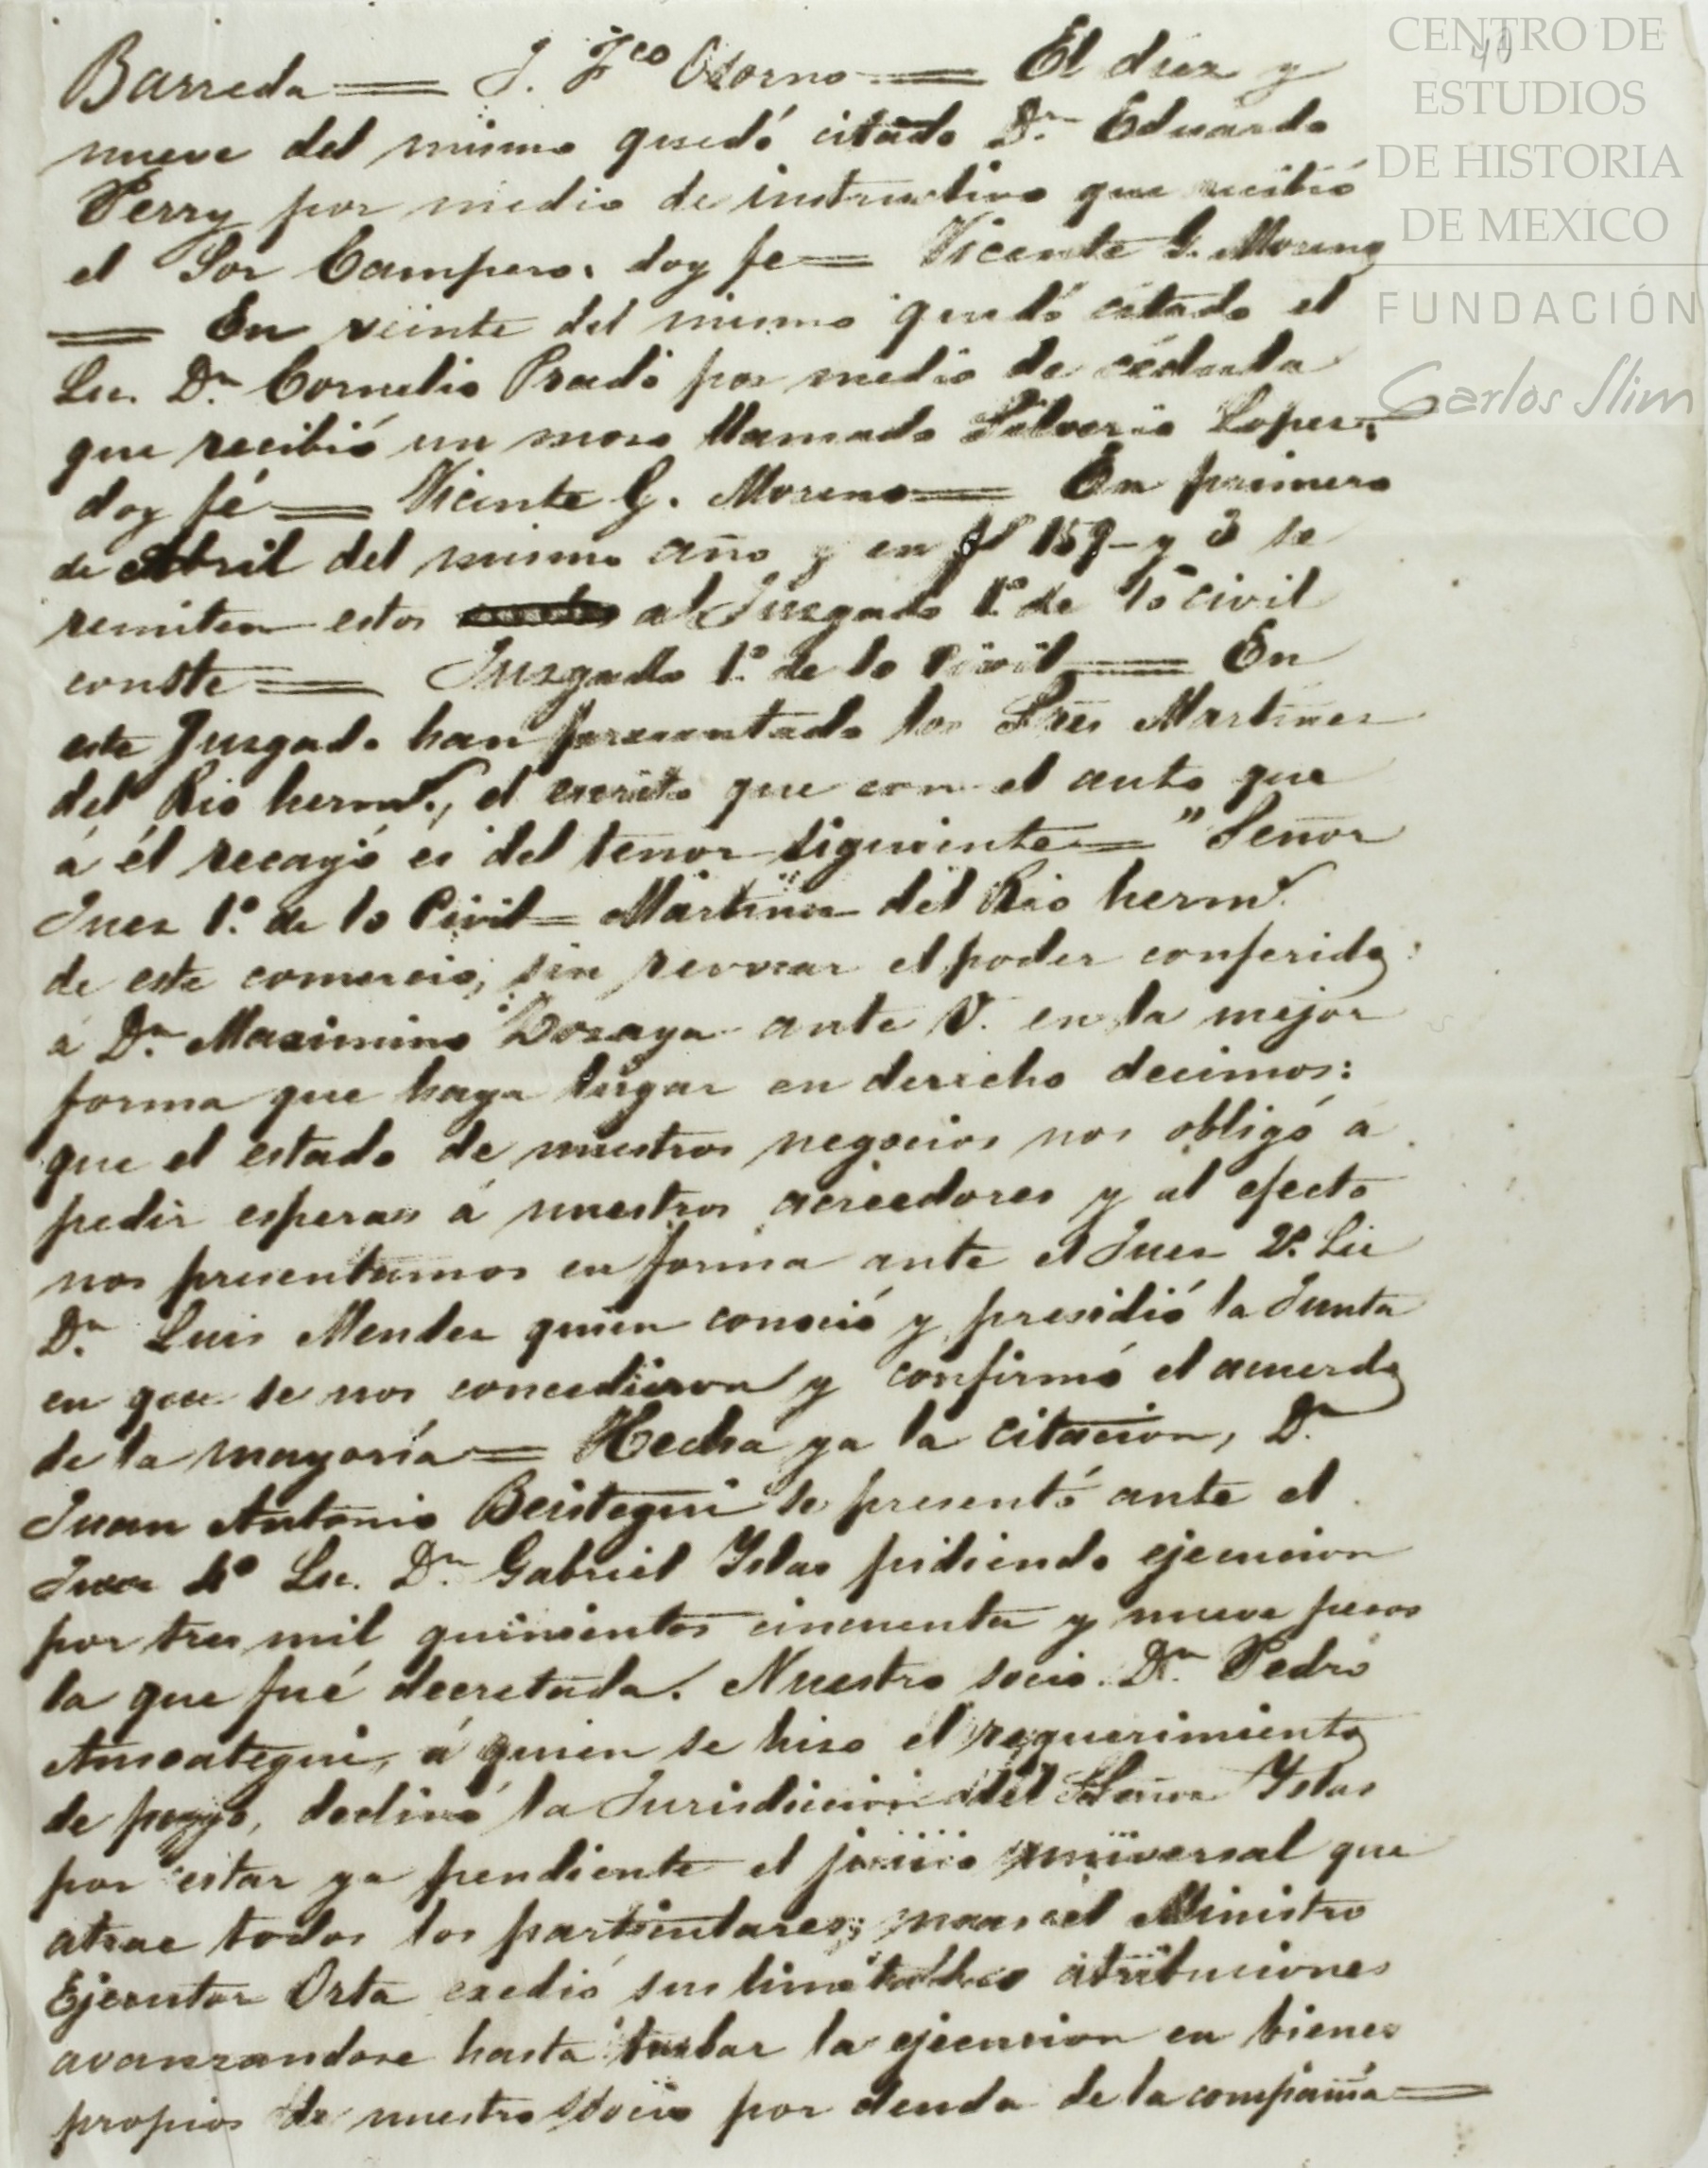 40
CENTRO DE
ESTUDIOS
DE HISTORIA
DE MEXICO
FUNDACIÓN
Carlos Slim
Barreda = J. Fco Osorno = El diez y
nueve del mismo quedó citado Dn. Eduardo
Perry por medio de instructivo que recibió
el Sor Campero, doy fe = Vicente G. Moreno
= En veinte del mismo quedó citado el
Lic. Dn. Cornelio Prado por medio de cédula
que recibió un moso llamado Silverio Lopez,
doy fé = Vicente G. Moreno = En primero
de Abril del mismo año y en f 159 y 3 se
remiten estos al Juzgado 1º de lo civil
conste = Juzgado 1º de lo Civil = En
este Juzgado han presentado los Sres Martinez
del Rio herms., el escrito que con el auto que
á él recayó es del tenor siguiente = "Señor
Juez 1º de lo Civil = Martinez del Rio herms.
de este comercio, sin revocar el poder conferido
á Dn. Maximino Dozaya ante V. en la mejor
forma que haya lugar en derecho decimos:
que el estado de nuestros negocios nos obligó á
pedir esperas á nuestros acreedores y al efecto
nos presentamos en forma ante el Juez 2º Lic
Dn. Luis Mendez quien conoció y presidió la Junta
en que se nos concedieron y confirmó el acuerdo
de la mayoría = Hecha ya la citacion, Dn.
Juan Antonio Beistegui se presentó ante el
Juez 4º Lic. Dn. Gabriel Yslas pidiendo ejecucion
por tres mil quinientos cincuenta y nueve pesos
la que fué decretada. Nuestro socio Dn. Pedro
Ansoategui, á quien se hizo el requerimiento
de pago, declinó la Jurisdiccion del Señor Yslas
por estar ya pendiente el juicio universal que
atrae todos los particulares; mas el Ministro
Ejecutor Orta exedió sus limitadas atribuciones
avanzandose hasta trabar la ejecucion en bienes
propios de nuestro socio por deuda de la compañia =